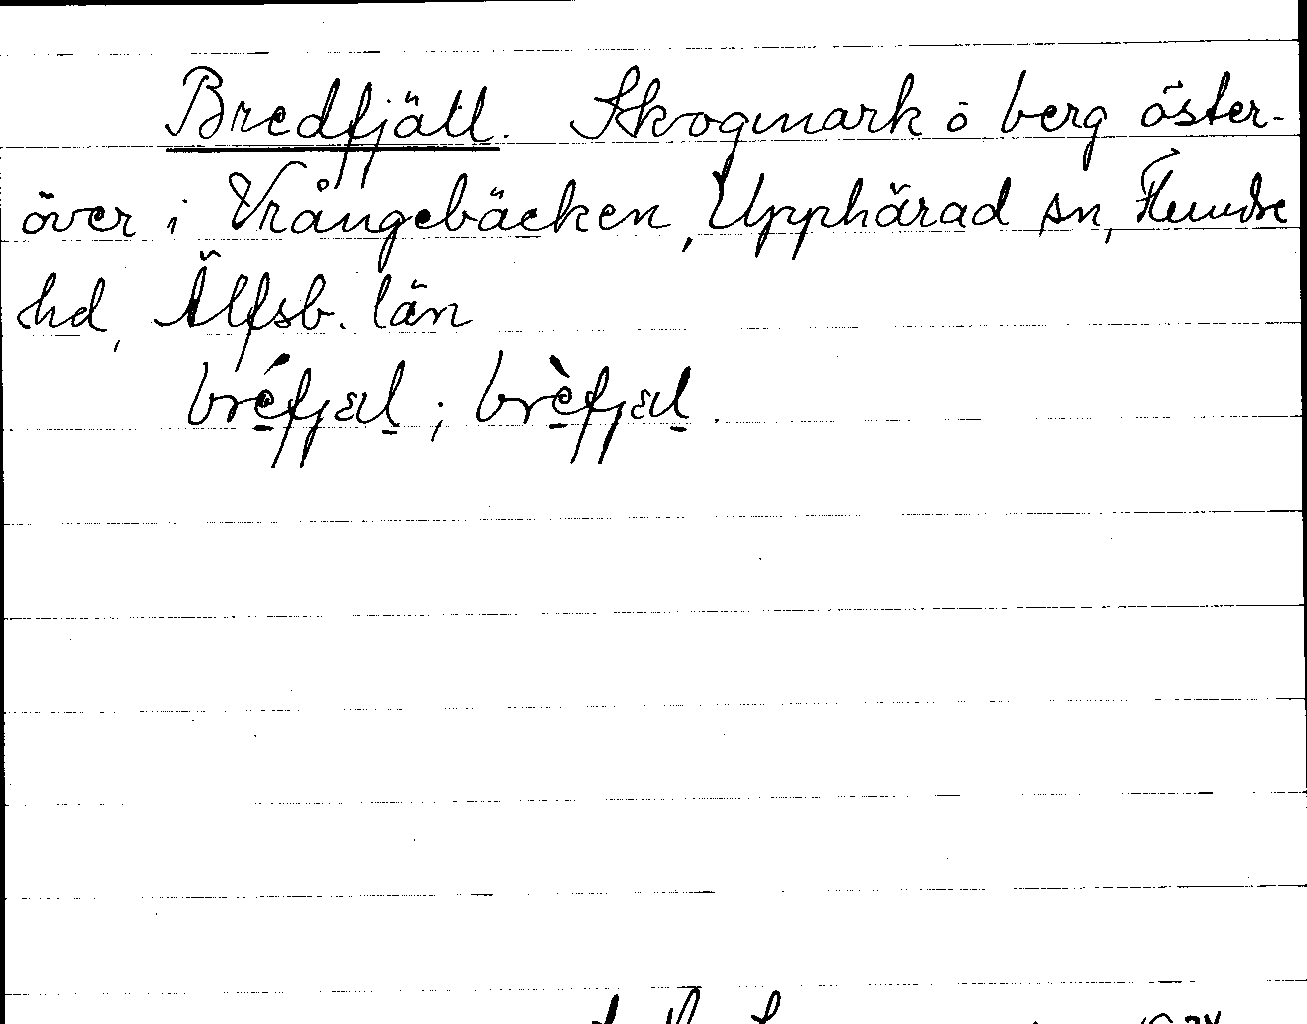 Bredfjäll. Skogmark ō berg öster-
över i Vrångebäcken, Upphärad sn, Flundre
hd, Älfsb. län
bréfjæl; brèfjæl.